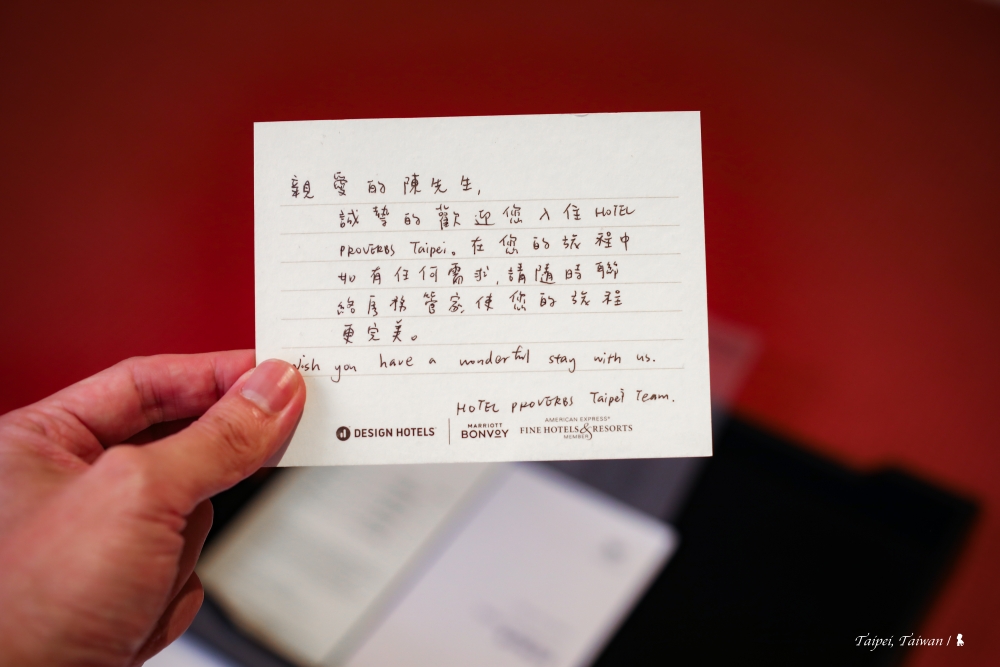 親愛的陳先生,
誠摯的歡迎您入住 HOTEL
PROVERBS Taipei。在您的旅程中
如有任何需求,請隨時聯
絡房務管家,使您的旅程
更完美。
wish you have a wonderful stay with us.
HOTEL PROVERBS Taipei Team.
DESIGN HOTELS
MARRIOTT
BONVOY
AMERICAN EXPRESS®
FINE HOTELS & RESORTS
MEMBER
Taipei, Taiwan /